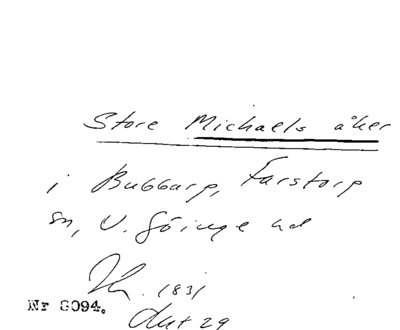 Store Michaels åker
i Bubbarp, Farstorp
sn, V. Göinge hd
1831
Nr 8094.
Akt 29